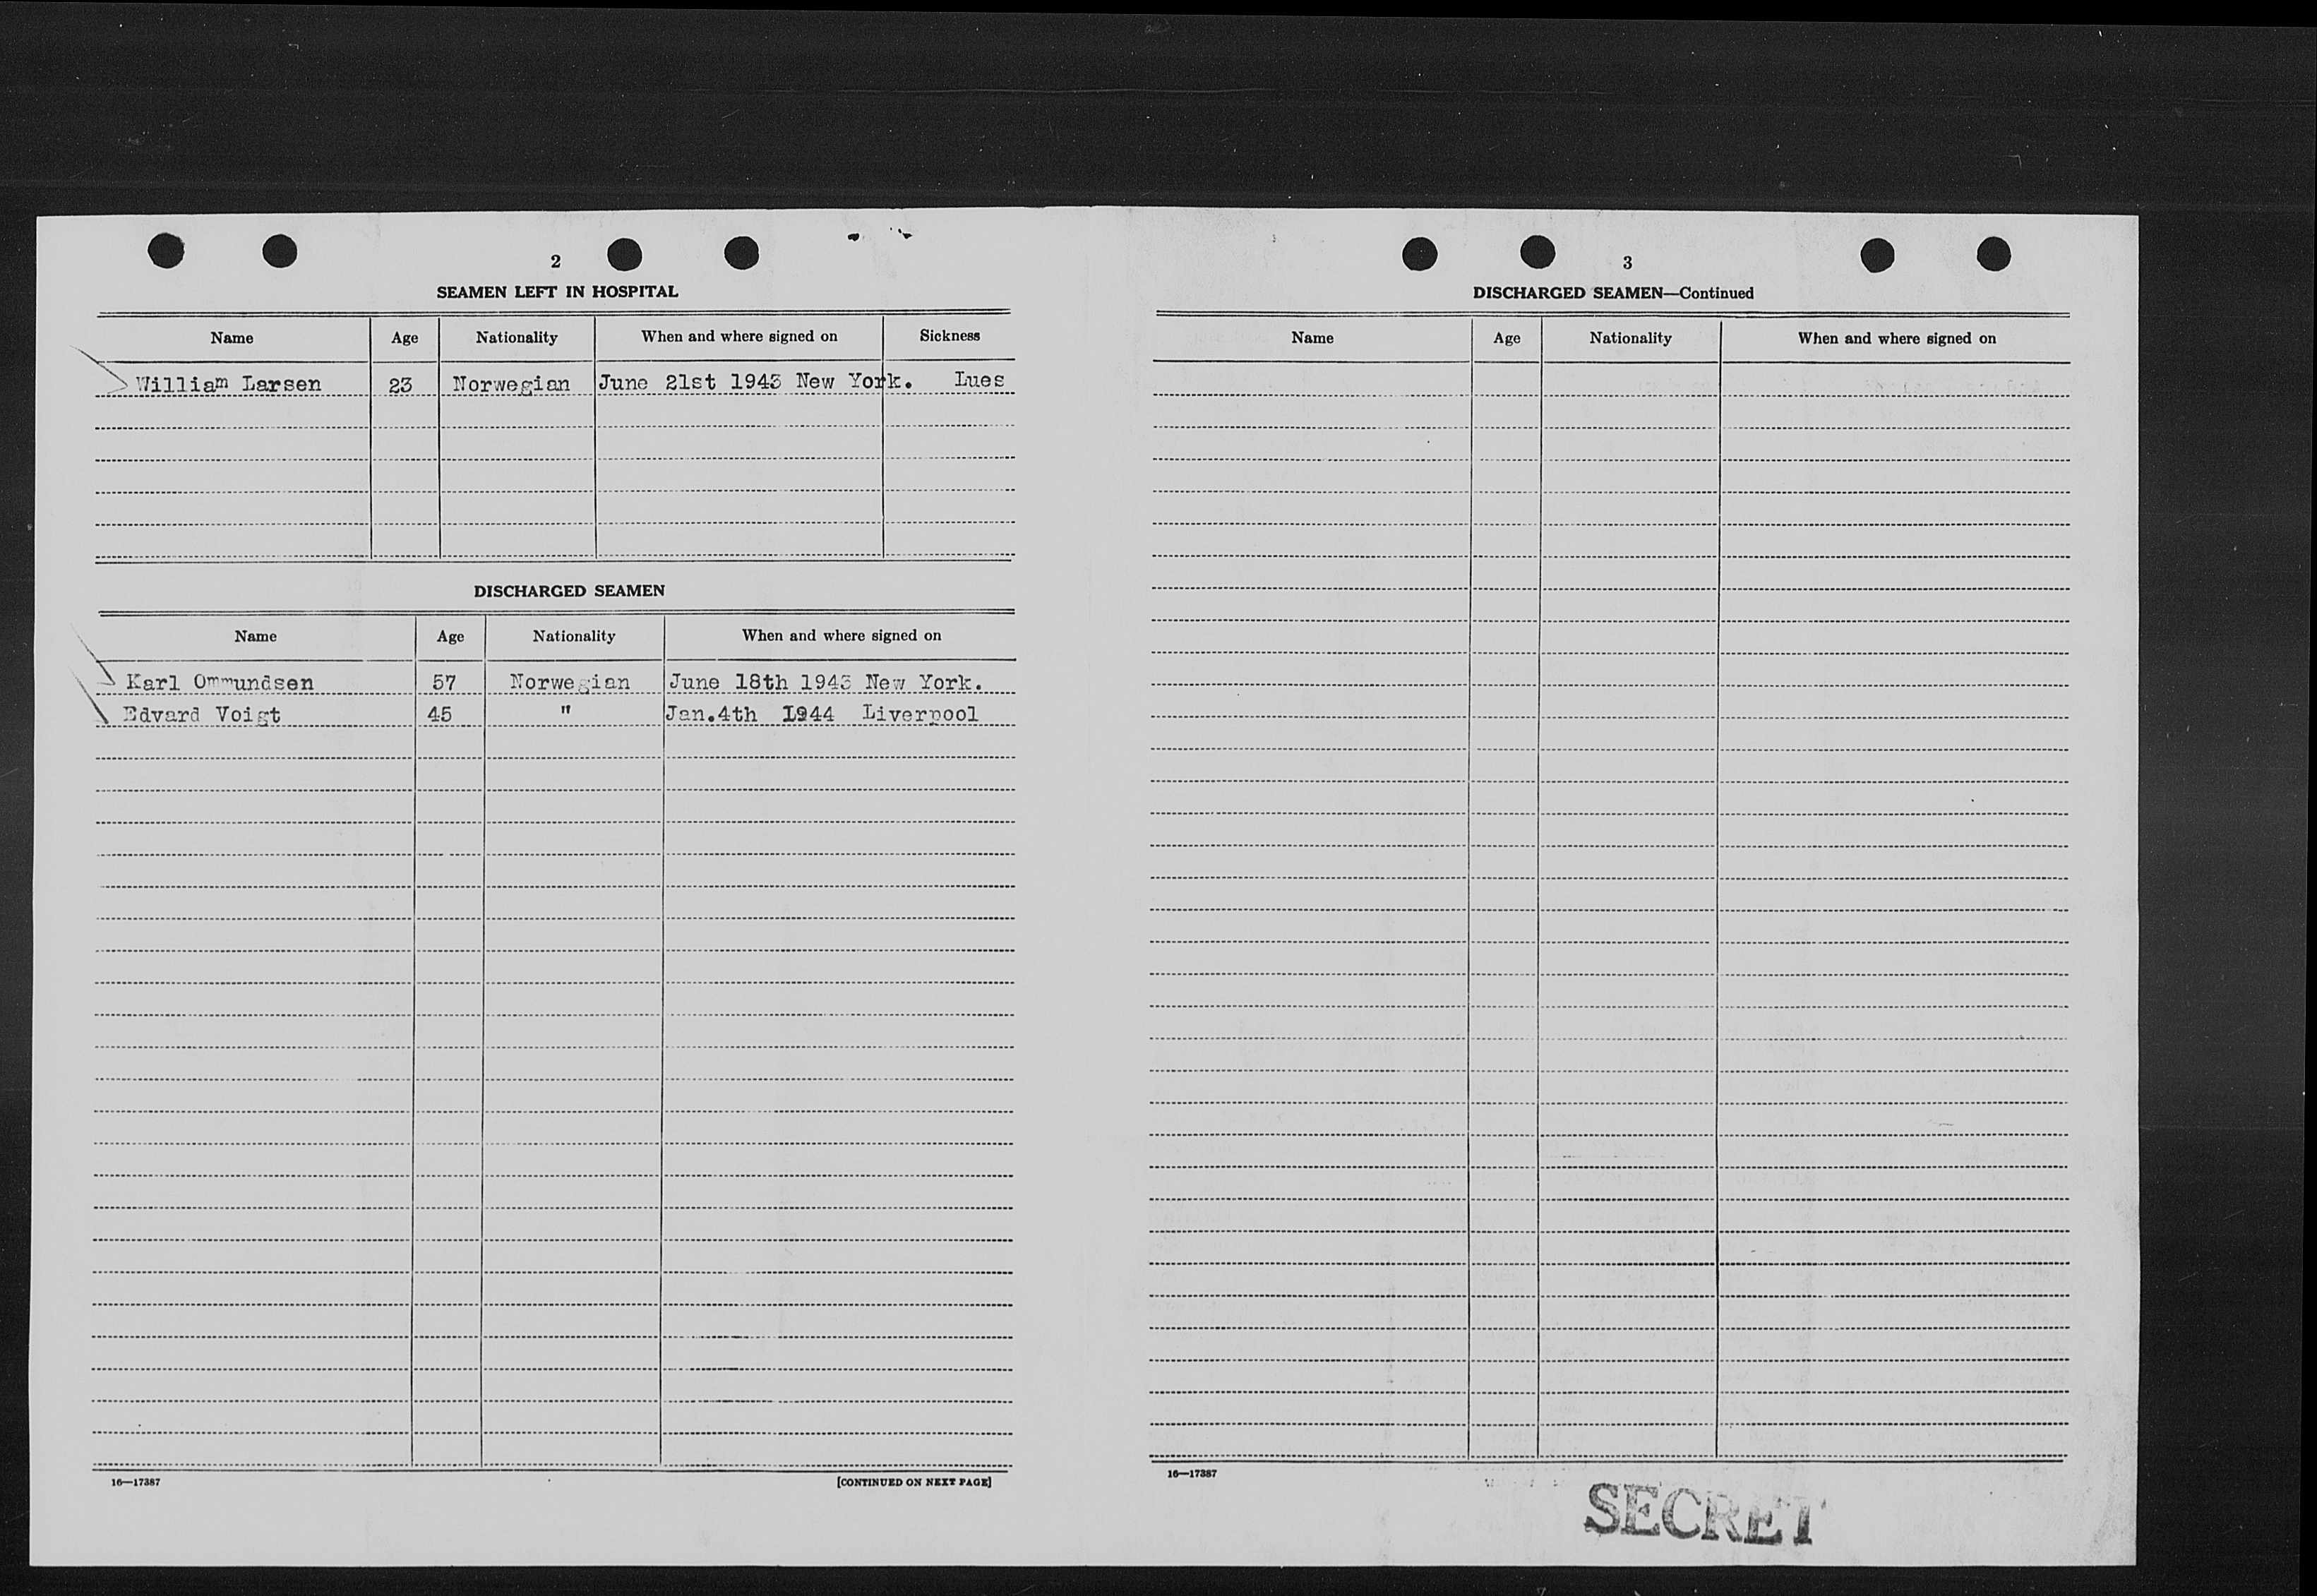 2
SEAMEN LEFT IN HOSPITAL
Name Age Nationality When and where signed on Sickness
William Larsen 23 Norwegian June 21st 1943 New York. Lues
DISCHARGED SEAMEN
Name Age Nationality When and where signed on
Karl Ommundsen 57 Norwegian June 18th 1943 New York.
Edvard Voigt 45 " Jan.4th 1944 Liverpool
16—17387 [CONTINUED ON NEXT PAGE]
3
DISCHARGED SEAMEN—Continued
Name Age Nationality When and where signed on
16—17387
SECRET